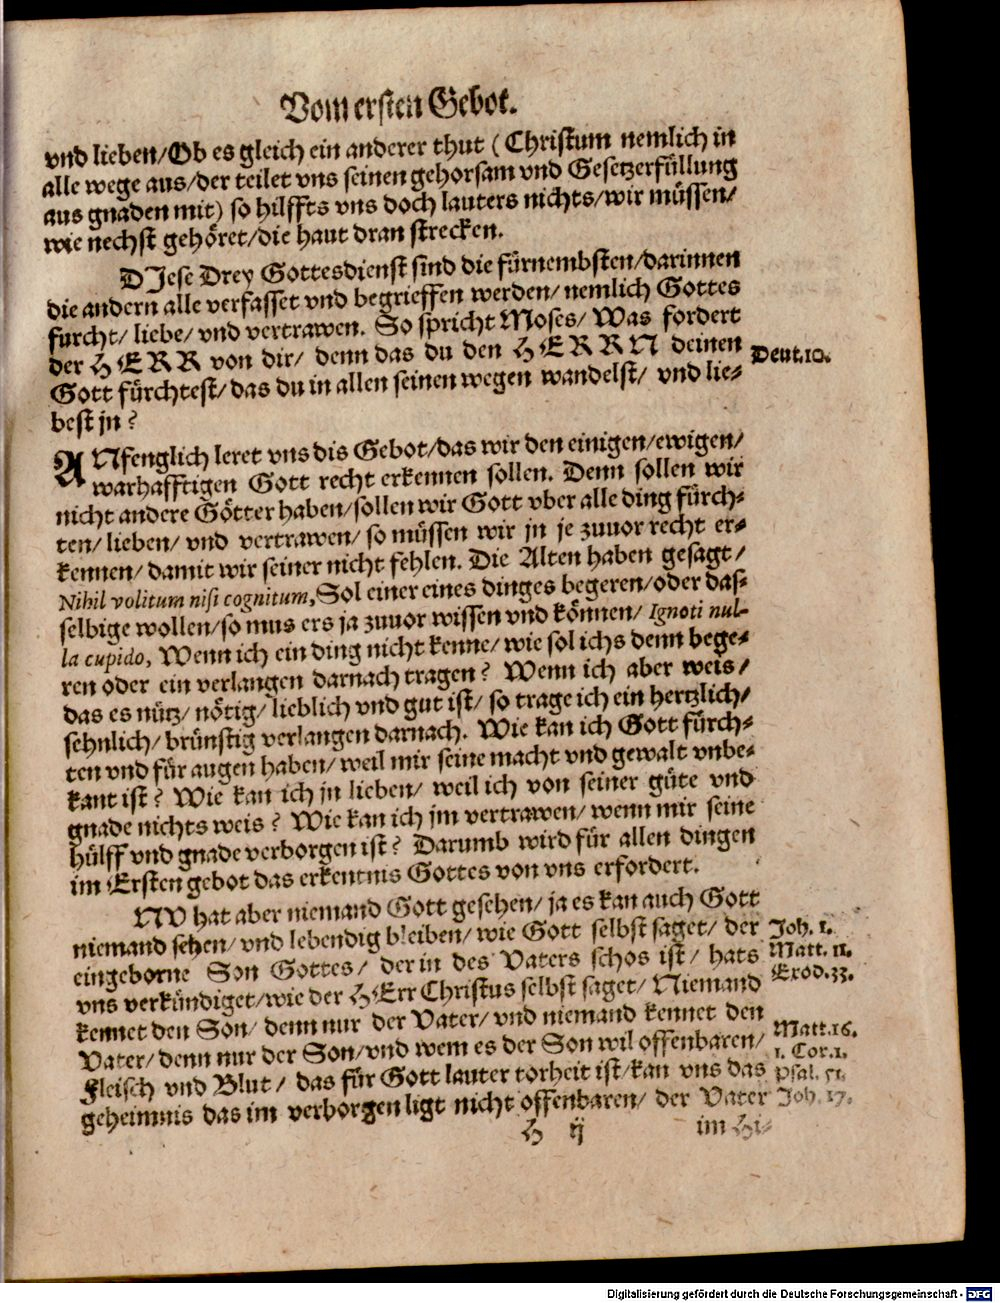 Vom ersten Gebot.
vnd lieben/Ob es gleich ein anderer thut (Christum nemlich in
alle wege aus/der teilet vns seinen gehorsam vnd Gesetzerfüllung
aus gnaden mit) so hilffts vns doch lauters nichts/wir müssen/
wie nechst gehöret/die haut dran strecken.
DIese Drey Gottesdienst sind die fürnembsten/darinnen
die andern alle verfasset vnd begrieffen werden/nemlich Gottes
furcht/liebe/vnd vertrawen. So spricht Moses/Was fordert
der HERR von dir/denn das du den HERRN deinen
Deut. 10.
Gott fürchtest/das du in allen seinen wegen wandelst/vnd lie-
best jn?
ANfenglich leret vns dis Gebot/das wir den einigen/ewigen/
warhafftigen Gott recht erkennen sollen. Denn sollen wir
nicht andere Götter haben/sollen wir Gott vber alle ding fürch-
ten/lieben/vnd vertrawen/so müssen wir jn je zuuor recht er-
kennen/damit wir seiner nicht fehlen. Die Alten haben gesagt/
Nihil volitum nisi cognitum, Sol einer eines dinges begeren/oder das-
selbige wollen/so mus ers ja zuuor wissen vnd können/Ignoti nul-
la cupido, Wenn ich ein ding nicht kenne/wie sol ichs denn bege-
ren oder ein verlangen darnach tragen? Wenn ich aber weis/
das es nütz/nötig/lieblich vnd gut ist/so trage ich ein hertzlich/
sehnlich/brünstig verlangen darnach. Wie kan ich Gott fürch-
ten vnd für augen haben/weil mir seine macht vnd gewalt vnbe-
kant ist? Wie kan ich jn lieben/weil ich von seiner güte vnd
gnade nichts weis? Wie kan ich jm vertrawen/wenn mir seine
hülff vnd gnade verborgen ist? Darumb wird für allen dingen
im Ersten gebot das erkentnis Gottes von vns erfordert.
NV hat aber niemand Gott gesehen/ja es kan auch Gott
niemand sehen/vnd lebendig bleiben/wie Gott selbst saget/der
Joh. 1.
eingeborne Son Gottes/der in des Vaters schos ist/hats
Matt. 11.
vns verkündiget/wie der HErr Christus selbst saget/Niemand
Exod. 33.
kennet den Son/denn nur der Vater/vnd niemand kennet den
Vater/denn nur der Son/vnd wem es der Son wil offenbaren/
Matt. 16.
1. Cor. 1.
Fleisch vnd Blut/das für Gott lauter torheit ist/kan vns das
Psal. 51.
geheimnis das im verborgen ligt nicht offenbaren/der Vater
Joh. 17.
H ij
im Hi-
Digitalisierung gefördert durch die Deutsche Forschungsgemeinschaft - DFG